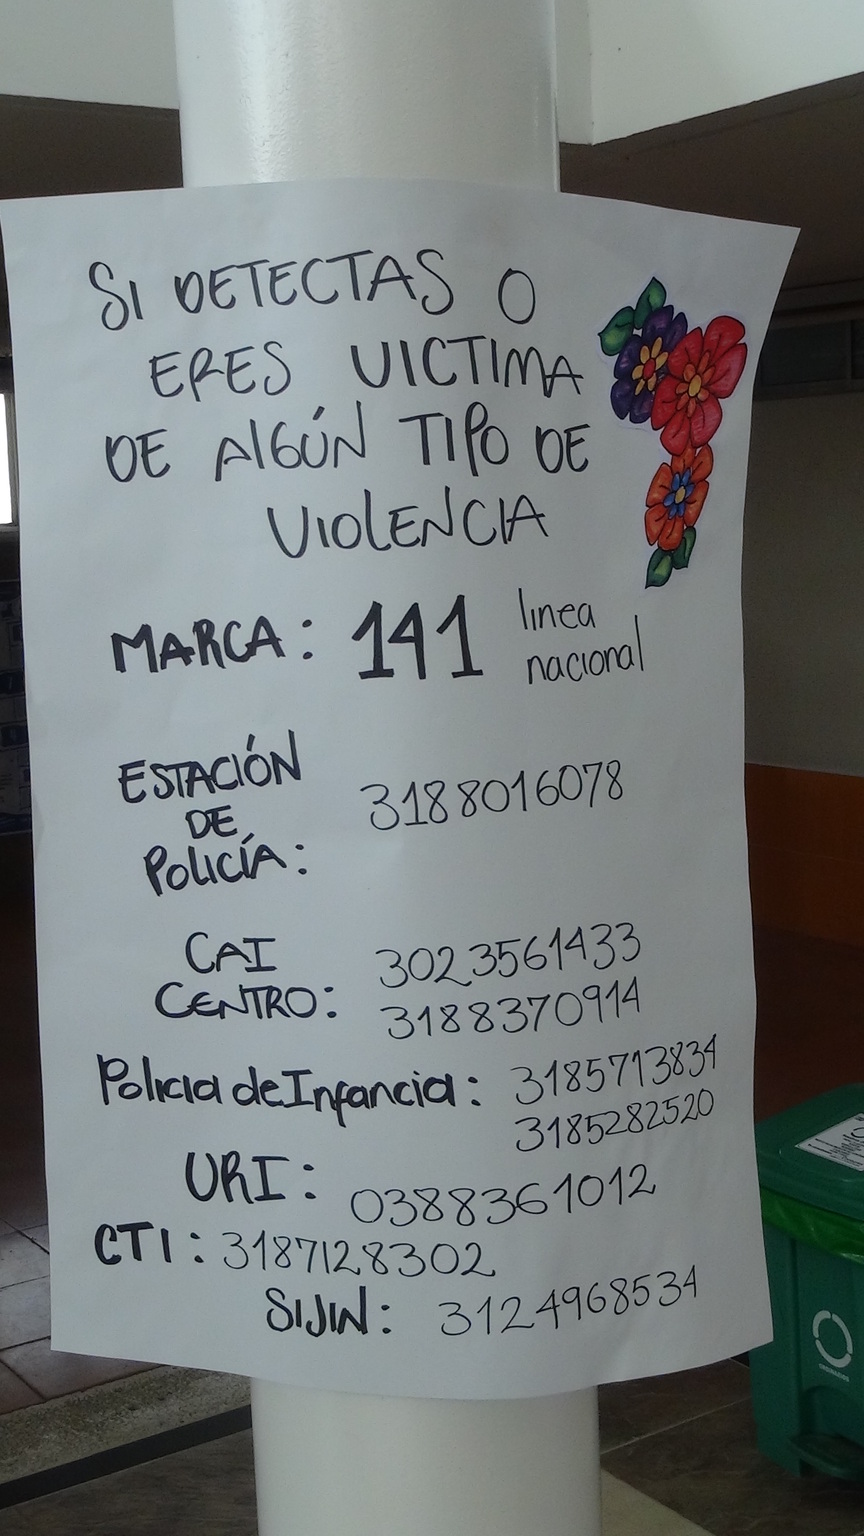 SI DETECTAS O
ERES VICTIMA
DE AlGÚN TIPO DE
VIOLENCIA
MARCA: 141 linea
nacional
ESTACIÓN
DE
POLICÍA: 3188016078
CAI
CENTRO: 3023561433
3188370914
Policia de Infancia: 3185713834
3185282520
URI: 0388361012
CTI: 3187128302
SIJIN: 3124968534